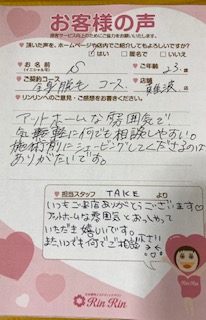 お客様の声
頂いた声を、ホームページや店内でご紹介してもよろしいですか?
はい 匿名で いいえ
お名前
(イニシャル可)
S
ご年齢
23歳
ご契約コース
全身脱毛 コース
店舗
難波
リンリンへのご意見・ご感想をお書きください。
アットホームな雰囲気で
気軽に何でも相談しやすい。
施術前にシェービングしてくださるのは
ありがたいです。
担当スタッフ TAKE より
いつもご来店ありがとうございます♡
アットホームな雰囲気とおっしゃって
いただき嬉しいです。
またいつでも何でもご相談
下さい
Rin Rin